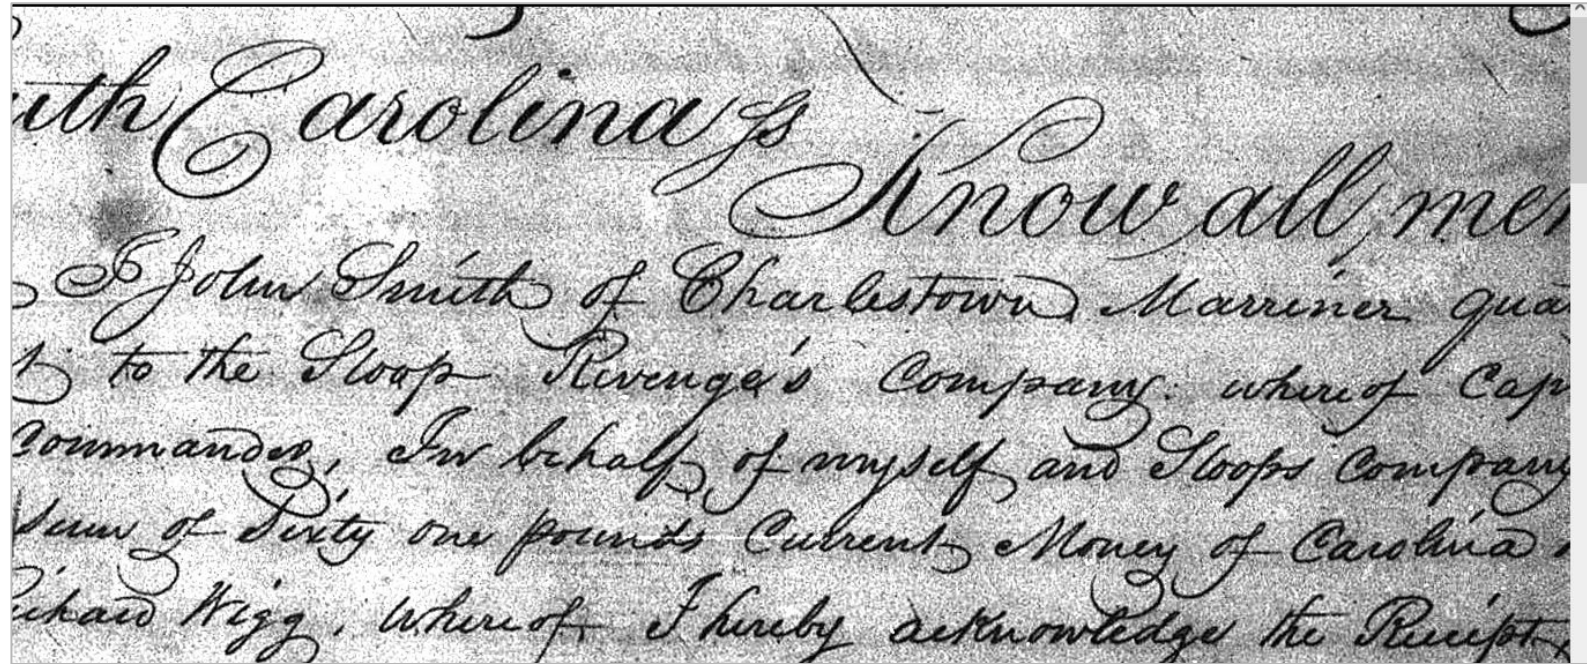 uth Carolina ss
Know all men
I John Smith of Charlestown Marriner qua
t to the Sloop Revenge's Company: whereof Cap
Commander, In behalf of myself and Sloops Company
sum of Sixty one pounds Current Money of Carolina
Richard Wigg, whereof I hereby acknowledge the Receipt